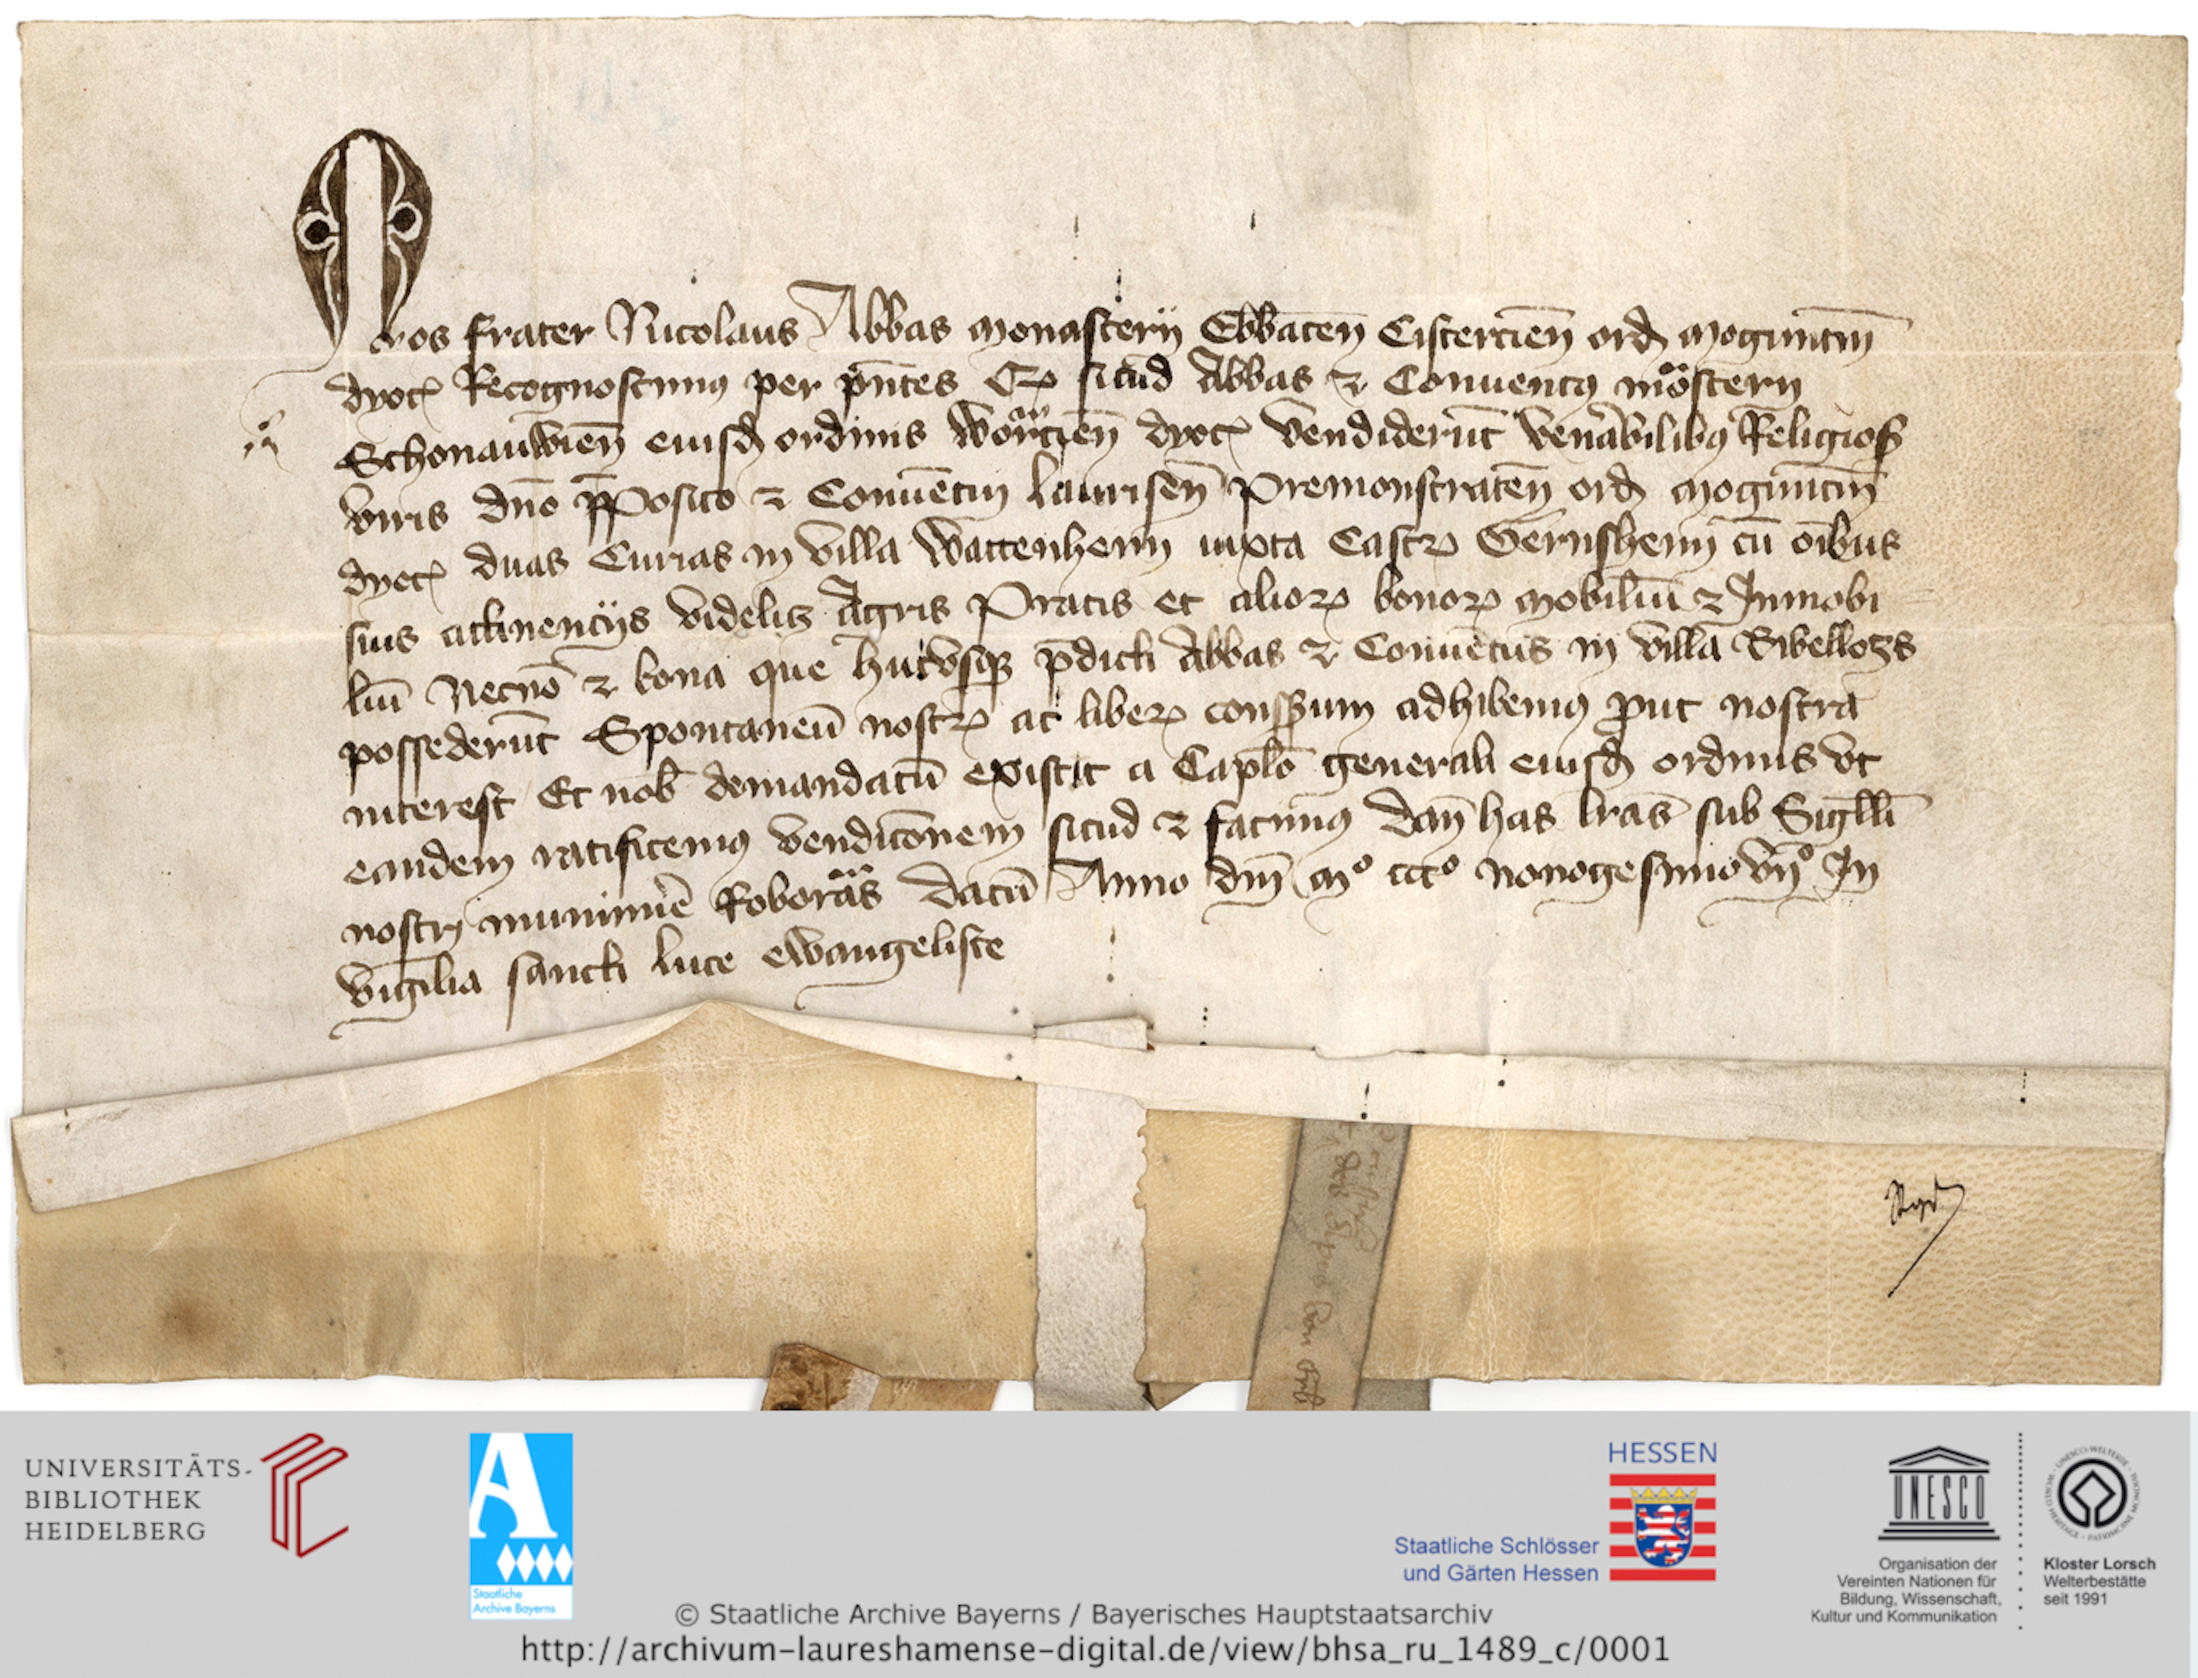 Nos frater Nicolaus Abbas Monasterij Ebbacen̄ Cistercien̄ ord Moguntin̄
dyoc̄ Recognoscimus per pn̄tes Qr sicud Abbas et Conuentꝯ mo͛sterij
Schonauwien̄ eiusd ordinis Wormacien̄ dyoc̄ vendiderūt venābilibꝯ Religios
viris dn̄o p̄posito et Conuētui Laurisen̄ Premonstraten̄ ord Moguntin̄
dyoc̄ duas Curias in villa Wattenheim iuxta Castrꝝ Gernsheim cū oībus
suis attinencijs videlicꝫ Agris Pratis et alioꝝ bonoꝝ mobiliū et Inmobi
liū Necnō et bona que hucvsqꝫ p̄dicti Abbas et Conuētus in villa Bibelloꝫs
possederūt Spontaneū nostrꝝ ac liberꝝ consēsum adhibemꝯ prout nostra
interest Et nob̄ demandatū existit a Caplō generali eiusd ordinis vt
eandem ratificemꝯ vendicōnem sicud et facimꝯ Dan̄ has lrās sub Sigilli
nostri munimīe Roborat͛as Datū Anno dn̄i Mº cccº nonogesimo vijº In
vigilia sancti Luce ewangeliste
UNIVERSITÄTS-
BIBLIOTHEK
HEIDELBERG
Staatliche
Archive Bayerns
HESSEN
Staatliche Schlösser
und Gärten Hessen
UNESCO
Organisation der
Vereinten Nationen für
Bildung, Wissenschaft,
Kultur und Kommunikation
Kloster Lorsch
Welterbestätte
seit 1991
© Staatliche Archive Bayerns / Bayerisches Hauptstaatsarchiv
http://archivum-laureshamense-digital.de/view/bhsa_ru_1489_c/0001